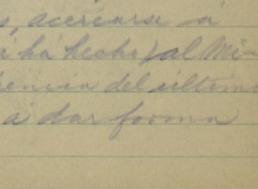 s, acercarse a
a ha hecho, al Mi-
rencia del último
a dar forma